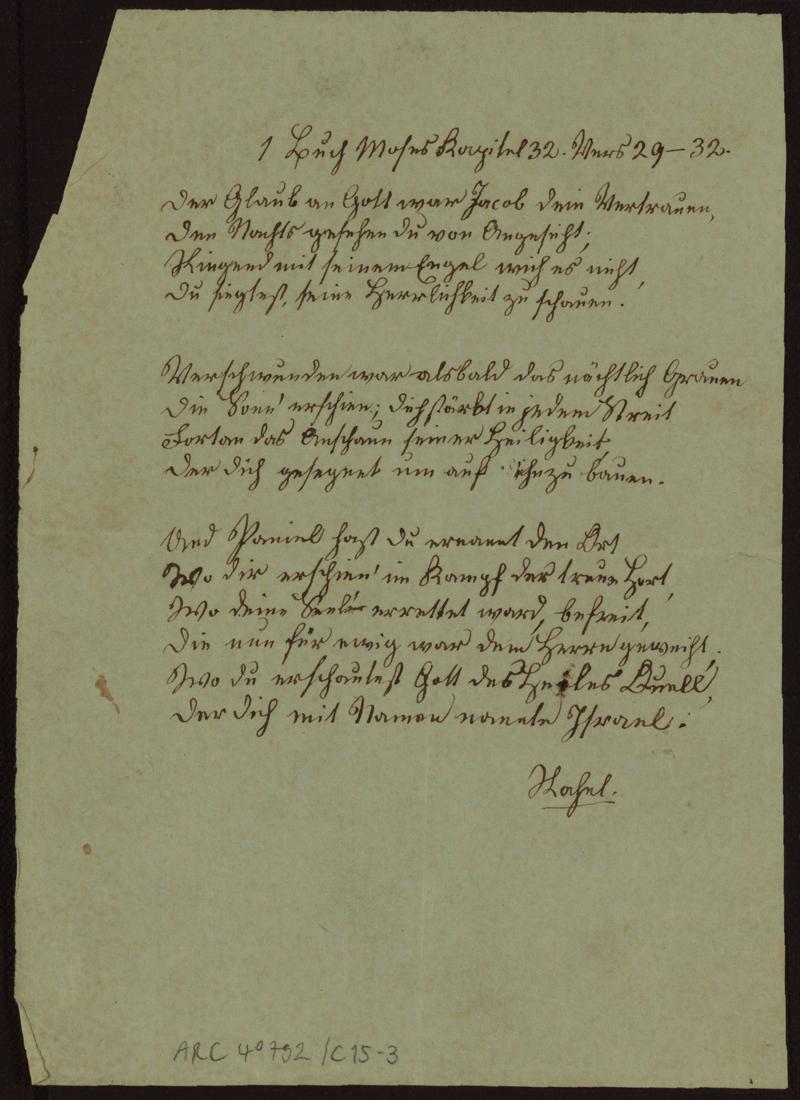 1 Buch Moses Kapitel 32. Vers 29–32.
Der Glaub an Gott war Jacob dein Vertrauen,
Den Nachts gesehen du von Angesicht;
Ringend mit seinem Engel wich es nicht,
Du siegtest, seine Herrlichkeit zu schauen.
Verschwunden war alsbald das nächtlich Grauen
Die Sonn' erschien; dich stärkt in jedem Streit
Fortan das Anschaun seiner Heiligkeit,
Der dich gesegnet um auf ihn zu bauen.
Und Paniel hast du ernannt den Ort
Wo dir erschien' im Kampf der treue Hort,
Wo deine Seel' errettet ward, befreit,
Die nun für ewig war dem Herrn geweiht.
Wo du erschautest Gott des Heiles Quell,
Der dich mit Namen nannte Israel.
Rahel.
ARC 4° 792 /C15-3